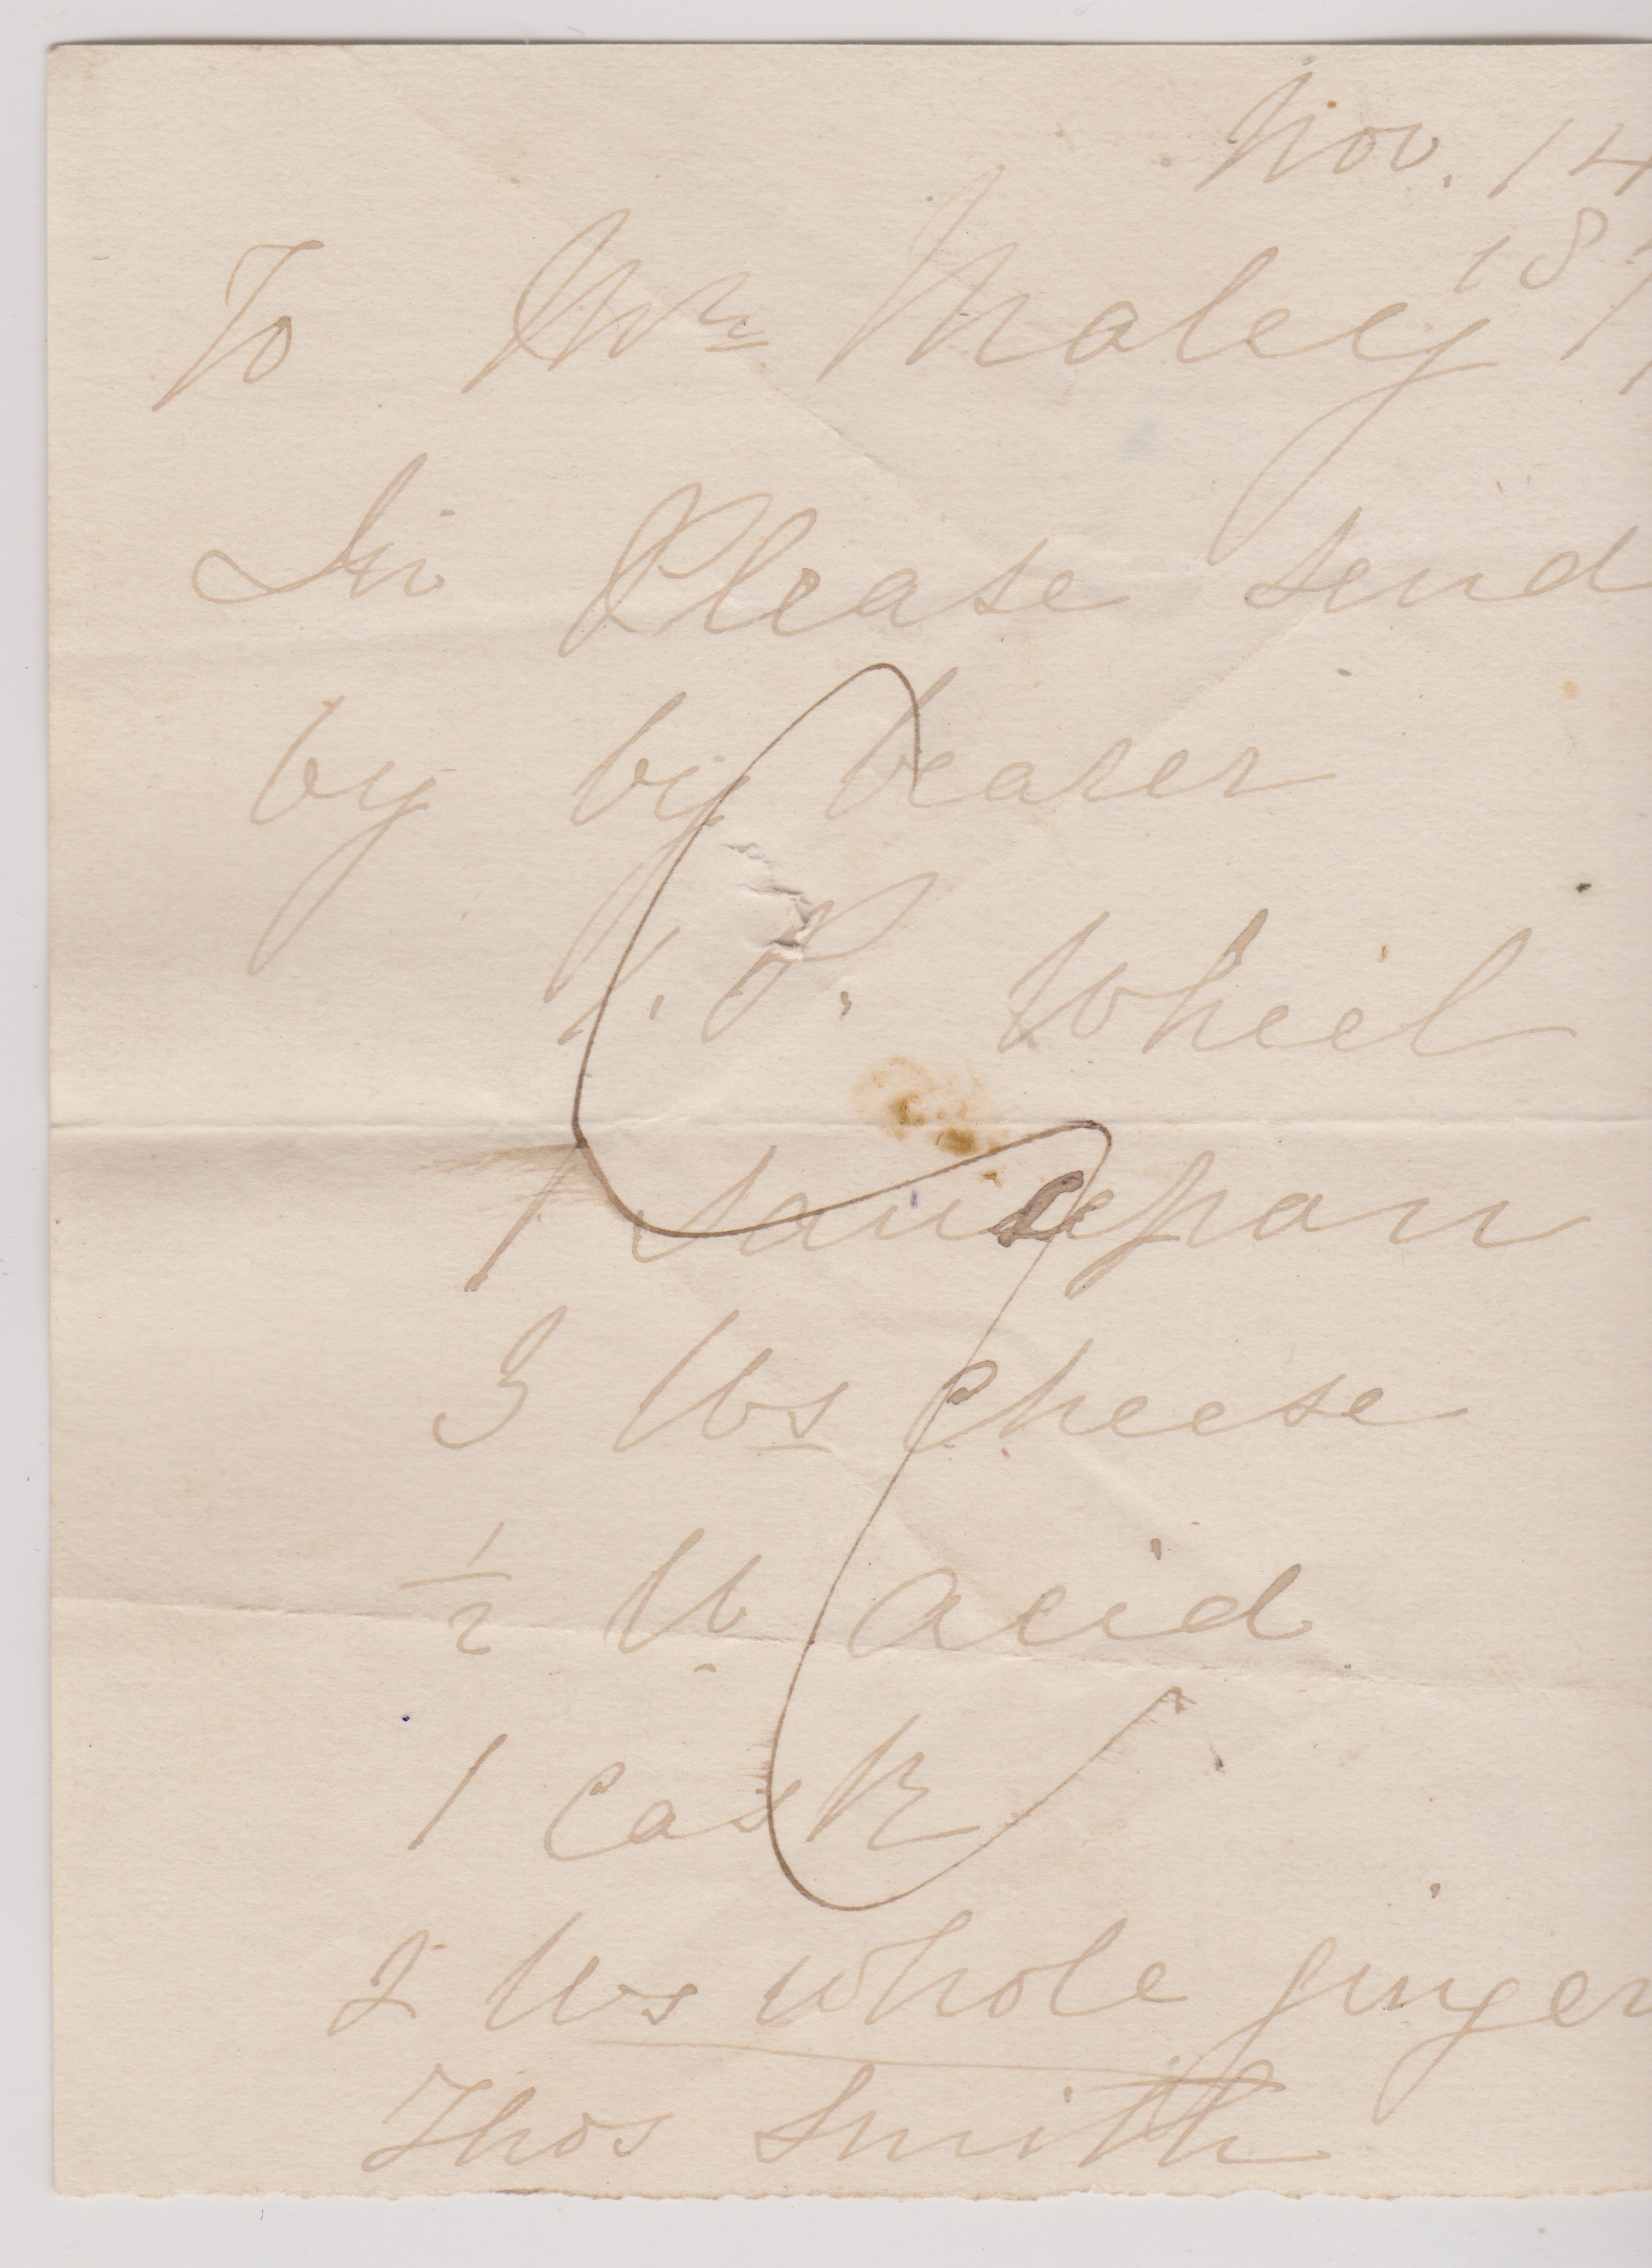 Nov. 14
187
To Mr Maley
Sir Please send
by by bearer
1. P. Wheel
1 saucepan
3 lbs Cheese
1/2 lb acid
1 Cask
2 lbs whole ginger
Thos Smith